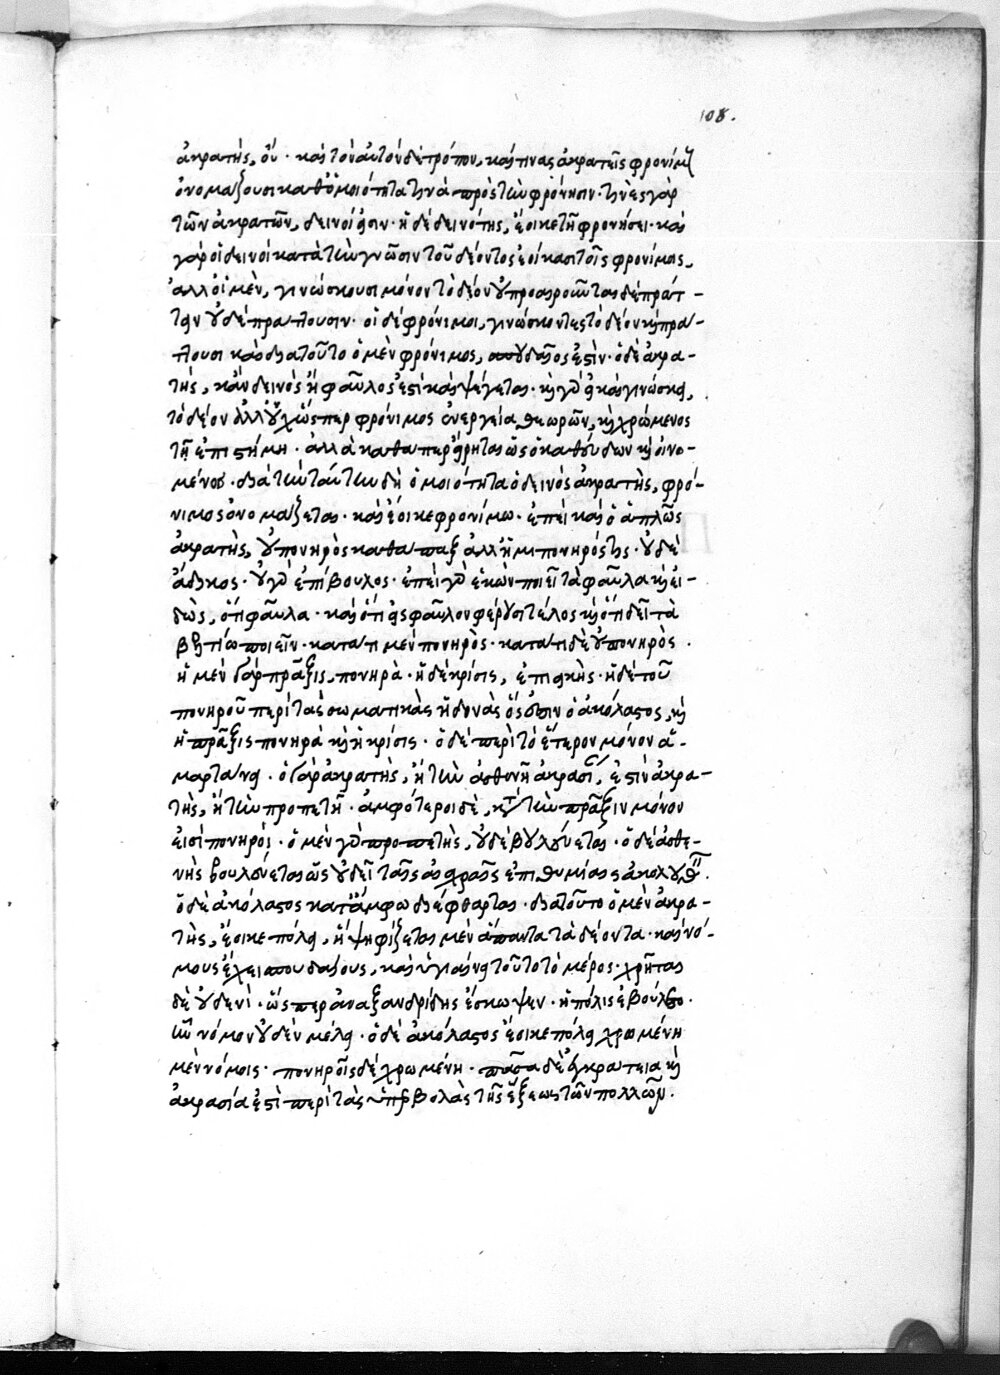 108.
ἀκρατής, οὔ · καὶ τὸν αὐτὸν δὲ τρόπον, καί τινας ἀκρατεῖς φρονίμους
ὀνομάζουσι καθ' ὁμοιότητα τινὰ πρὸς τὴν φρόνησιν · τινὲς γὰρ
τῶν ἀκρατῶν, δεινοί εἰσιν · ἡ δὲ δεινότης, ἔοικε τῇ φρονήσει · καὶ
γὰρ οἱ δεινοὶ κατὰ τὴν γνῶσιν τοῦ δέοντος ἐοίκασι τοῖς φρονίμοις,
ἀλλ' οἱ μὲν, γινώσκουσι μόνον τὸ δέον οὐ προαιροῦνται δὲ πράτ-
τειν οὐδὲ πράττουσιν · οἱ δὲ φρόνιμοι, γινώσκοντες τὸ δέον καὶ πρά-
ττουσι καὶ διατοῦτο ὁ μὲν φρόνιμος, σπουδαῖος ἐστὶν · ὁ δὲ ἀκρα-
τής, κἂν δεινὸς ᾖ φαῦλος ἐστὶ καὶ ψέγεται · καὶ γὰρ εἰ καὶ γινώσκει,
τὸ δέον ἀλλ' οὐχ ὥσπερ φρόνιμος ἐνεργείᾳ θεωρῶν, καὶ χρώμενος
τῇ ἐπιστήμῃ · ἀλλὰ καθάπερ εἴρηται ὡς ὁ καθεύδων καὶ οἰνω-
μένος · διὰ τὴν ταύτην δὴ ὁμοιότητα ὁ δεινὸς ἀκρατής, φρό-
νιμος ὀνομάζεται · καὶ ἔοικε φρονίμῳ · ἐπεὶ καὶ ὁ ἁπλῶς
ἀκρατής, οὐ πονηρὸς καθάπαξ ἀλλ' ἡμιπονηρός τις · οὐδὲ
ἄδικος · οὐ γὰρ ἐπίβουλος · ἐπεὶ γὰρ ἑκὼν ποιεῖ τὰ φαῦλα καὶ εἰ-
δὼς, ὅτι φαῦλα · καὶ ὅτι εἰς φαῦλον φέρουσι τέλος καὶ ὅτι δεῖ τὰ
βελτίω ποιεῖν · κατά τι μὲν πονηρὸς · κατά τι δὲ οὐ πονηρὸς ·
ἡ μὲν γὰρ πρᾶξις, πονηρὰ · ἡ δὲ κρίσις, ἐπιεικής · ἡ δὲ τοῦ
πονηροῦ περὶ τὰς σωματικὰς ἡδονὰς ὅς ἐστιν ὁ ἀκόλαστος, καὶ
ἡ πρᾶξις πονηρὰ καὶ ἡ κρίσις · ὁ δὲ περὶ τὸ ἕτερον μόνον ἁ-
μαρτάνει · ὁ γὰρ ἀκρατής, ἢ τὴν ἀσθενῆ ἀκρασίαν, ἐστὶν ἀκρα-
τής, ἢ τὴν προπετῆ · ἀμφότεροι δὲ, κατὰ τὴν πρᾶξιν μόνον
εἰσὶ πονηροί · ὁ μὲν γὰρ προπετής, οὐδὲ βουλεύεται · ὁ δὲ ἀσθε-
νὴς βουλεύεται ὡς οὐ δεῖ ταῖς αἰσχραῖς ἐπιθυμίαις ἀκολουθεῖν.
ὁ δὲ ἀκόλαστος κατ' ἄμφω διέφθαρται · διατοῦτο ὁ μὲν ἀκρα-
τής, ἔοικε πόλει, ἣ ψηφίζεται μὲν ἅπαντα τὰ δέοντα · καὶ νό-
μους ἔχει σπουδαίους, καὶ ὑγιαίνει τοῦτο τὸ μέρος · χρῆται
δὲ οὐδενὶ · ὥσπερ ἀναξανδρίδης ἔσκωψεν · ἡ πόλις ἐβούλετο ·
ᾗ νόμων οὐδὲν μέλει · ὁ δὲ ἀκόλαστος ἔοικε πόλει χρωμένῃ
μὲν νόμοις · πονηροῖς δὲ χρωμένῃ · πᾶσα δὲ ἐγκράτεια καὶ
ἀκρασία ἐστὶ περὶ τὰς ὑπερβολὰς τῆς ἕξεως τῶν πολλῶν.